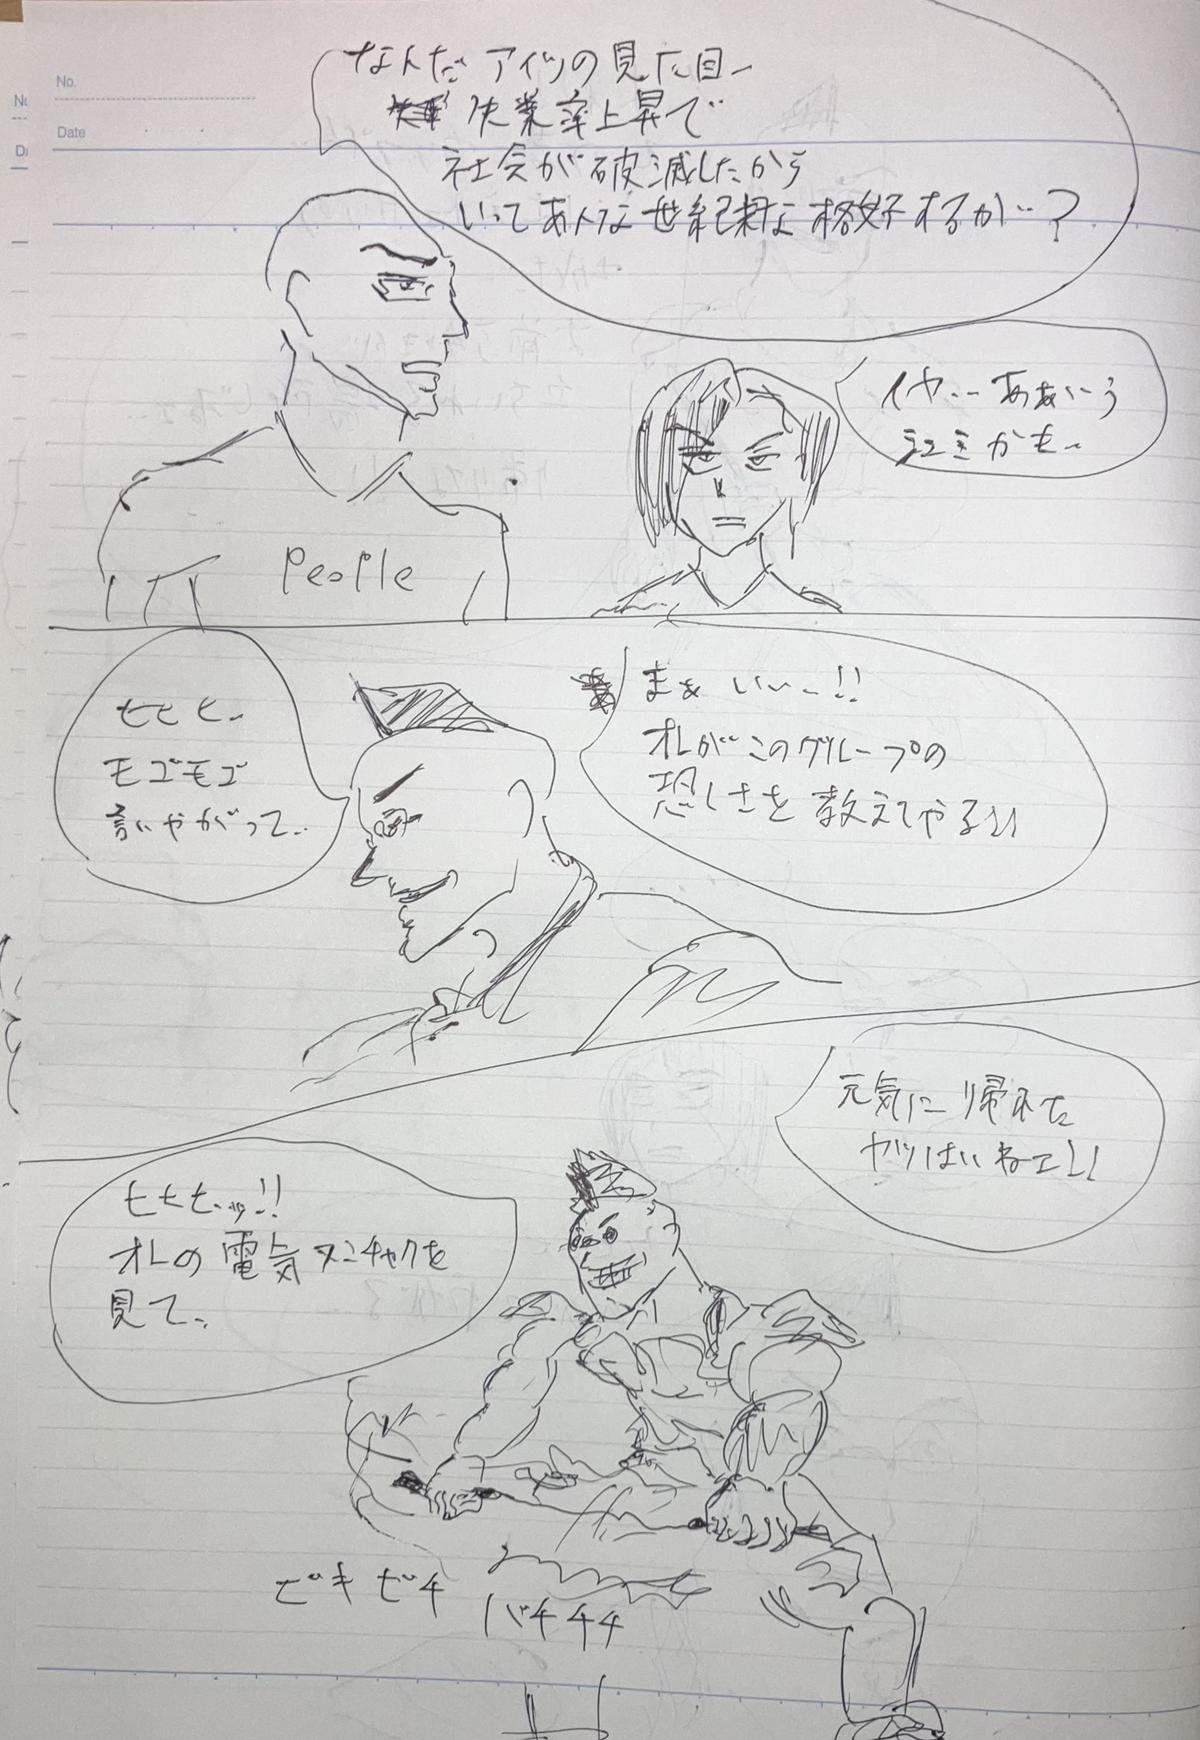 No.
Date
なんだ アイツの見た目、
失業率上昇で
社会が破滅したから
いってあんな世紀末な格好するか…?
イヤ…ああいう
かも、
People
まぁ いい…!!
オレがこのグループの
恐しさを教えてやる!!
ヒヒヒ、
モゴモゴ
言いやがって…
元気に帰れた
ヤツはいねェ!!
ヒヒヒ…ッ!!
オレの電気ヌンチャクを
見て、
ビキビチ
バチチチ